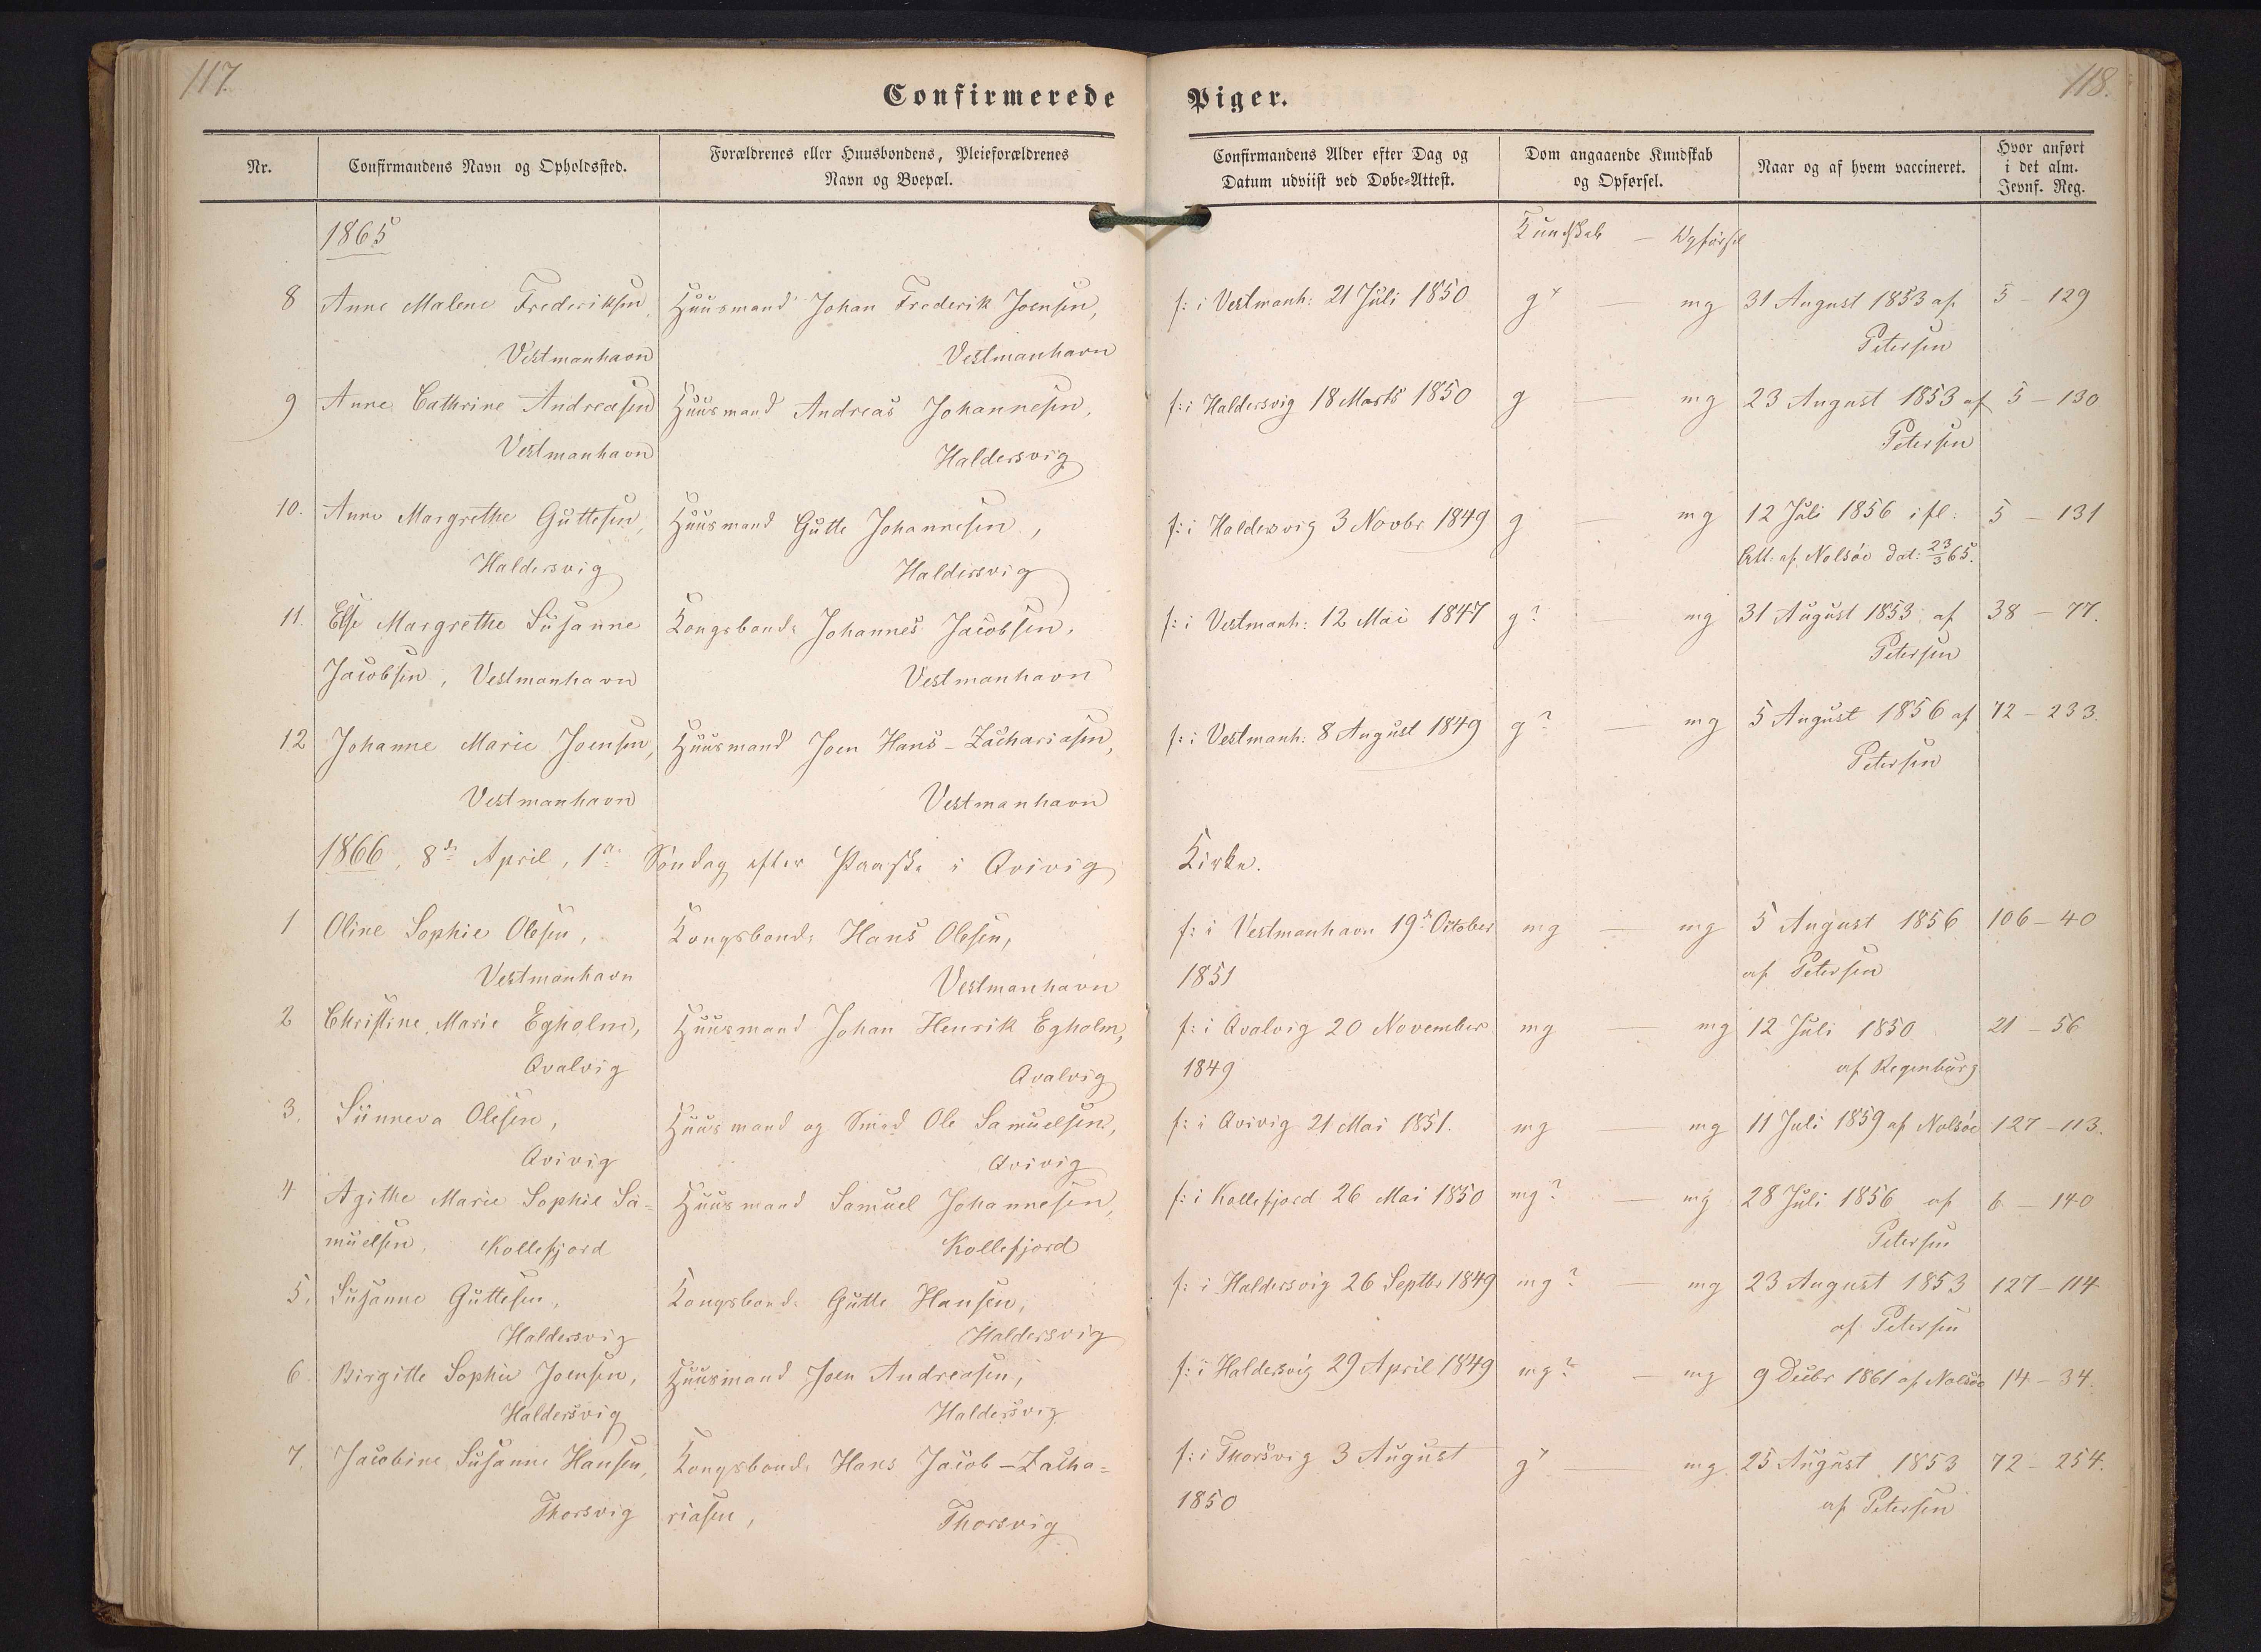 117.
118.
Confirmerede Piger.
Nr.
Confirmandens Navn og Opholdssted.
Forældrenes eller Huusbondens, Pleieforældrenes
Navn og Boepæl.
Confirmandens Alder efter Dag og
Datum udviist ved Døbe-Attest.
Dom angaaende Kundskab
og Opførsel.
Naar og af hvem vaccineret.
Hvor anført
i det alm.
Jevnf. Reg.
1865
Kundskab — Opførsel
8 Anne Malene Frederiksen, Huusmand Johan Frederik Joensen, f: i Vestmanh: 21 Juli 1850 g — mg 31 August 1853 af 5 - 129
Vestmanhavn Vestmanhavn Petersen
9 Anne Cathrine Andreasen Huusmand Andreas Johannesen, f: i Haldersvig 18 Marts 1850 g — mg 23 August 1853 af 5 - 130
Vestmanhavn Haldersvig Petersen
10. Anne Margrethe Guttesen, Huusmand Gutte Johannesen, f: i Haldersvig 3 Novbr 1849 g — mg 12 Juli 1856 ifl: 5 - 131
Haldersvig Haldersvig Att: af Nolsøe dat: 23/3 65.
11. Else Margrethe Susanne Kongsbonde Johannes Jacobsen, f: i Vestmanh: 12 Mai 1847 g? mg 31 August 1853 af 38 - 77.
Jacobsen, Vestmanhavn Vestmanhavn Petersen
12 Johanne Marie Joensen, Huusmand Joen Hans-Zachariasen, f: i Vestmanh: 8 August 1849 g? — mg 5 August 1856 af 72 - 233.
Vestmanhavn Vestmanhavn Petersen
1866, 8de April, 1ste Søndag efter Paaske i Qvivig Kirke.
1 Oline Sophie Olesen, Kongsbonde Hans Olesen, f: i Vestmanhavn 19de October mg — mg 5 August 1856 106 - 40
Vestmanhavn Vestmanhavn 1851 af Petersen
2 Christine Marie Egholm, Huusmand Johan Henrik Egholm, f: i Qvalvig 20 November mg — mg 12 Juli 1850 21 - 56
Qvalvig Qvalvig 1849 af Regenburg
3. Sunneva Olesen, Huusmand og Smed Ole Samuelsen, f: i Qvivig 21 Mai 1851. mg — mg 11 Juli 1859 af Nolsøe 127 - 113.
Qvivig Qvivig
4 Agithe Marie Sophie Sa= Huusmand Samuel Johannesen, f: i Kollefjord 26 Mai 1850 mg? — mg 28 Juli 1856 af 6 - 140
muelsen, Kollefjord Kollefjord Petersen
5. Susanne Guttesen, Kongsbonde Gutte Hansen, f: i Haldersvig 26 Septbr 1849 mg? — mg 23 August 1853 127 - 114
Haldersvig Haldersvig af Petersen
6. Birgitte Sophie Joensen, Huusmand Joen Andreasen, f: i Haldersvig 29 April 1849 mg? — mg 9 Decbr 1861 af Nolsøe 14 - 34.
Haldersvig Haldersvig
7. Jacobine Susanne Hansen, Kongsbonde Hans Jacob-Zacha= f: i Thorsvig 3 August g — mg 25 August 1853 72 - 254.
Thorsvig riasen, Thorsvig 1850 af Petersen